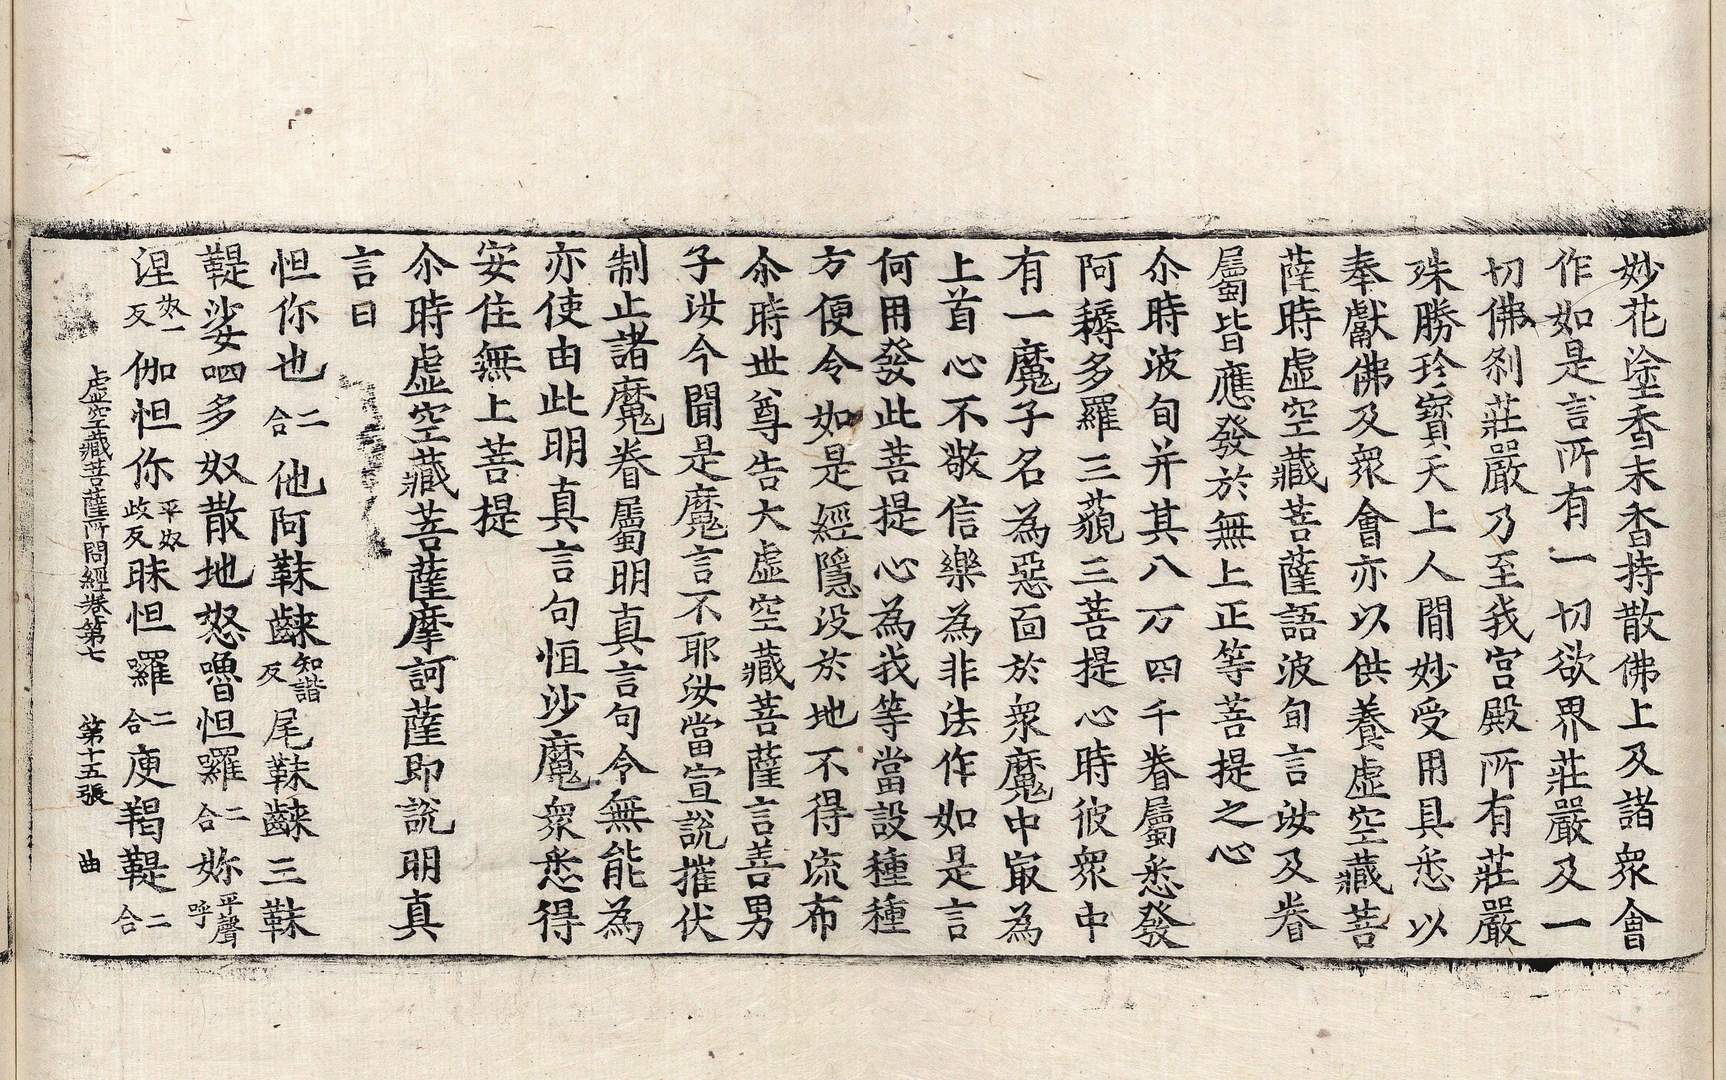 妙花塗香末香持散佛上及諸衆會
作如是言所有一切欲界莊嚴及一
切佛刹莊嚴乃至我宮殿所有莊嚴
殊勝珎寳天上人間妙受用具悉以
奉獻佛及衆會亦以供養虛空藏菩
薩時虛空藏菩薩語波旬言汝及眷
屬皆應發於無上正等菩提之心
尒時波旬并其八万四千眷屬悉發
阿耨多羅三藐三菩提心時彼衆中
有一魔子名為惡面於衆魔中冣為
上首心不敬信樂為非法作如是言
何用發此菩提心為我等當設種種
方便令如是經隱没於地不得流布
尒時世尊告大虛空藏菩薩言善男
子汝今聞是魔言不耶汝當宣說摧伏
制止諸魔眷屬明真言句令無能為
亦使由此明真言句恒沙魔衆悉得
安住無上菩提
尒時虛空藏菩薩摩訶薩即說明真
言曰
怛你也二合他阿䩋齼知諧反尾䩋齼三䩋
鞮娑呬多奴散地怒嚕怛囉二合妳平聲呼
涅奴一反伽怛你平奴歧反昧怛囉二合庾羯鞮二合
虛空藏菩薩所問經卷第七 第十五張 曲